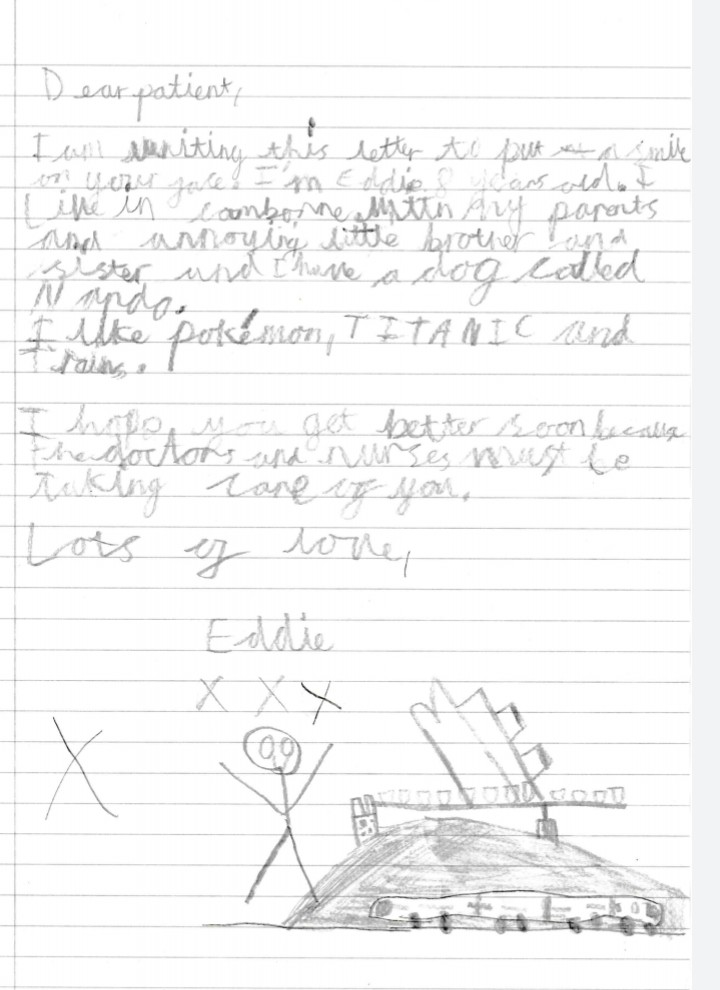 Dear patient,
I am writing this letter to put a smile
on your face. I'm Eddie 8 years old. I
Live in camborne with my parents
and annoying little brother and
sister and I have a dog called
Nando.
I like pokémon, TITANIC and
Trains.
I hope you get better soon because
the doctors and nurses must be
taking care of you.
Lots of love,
Eddie
X X X
X